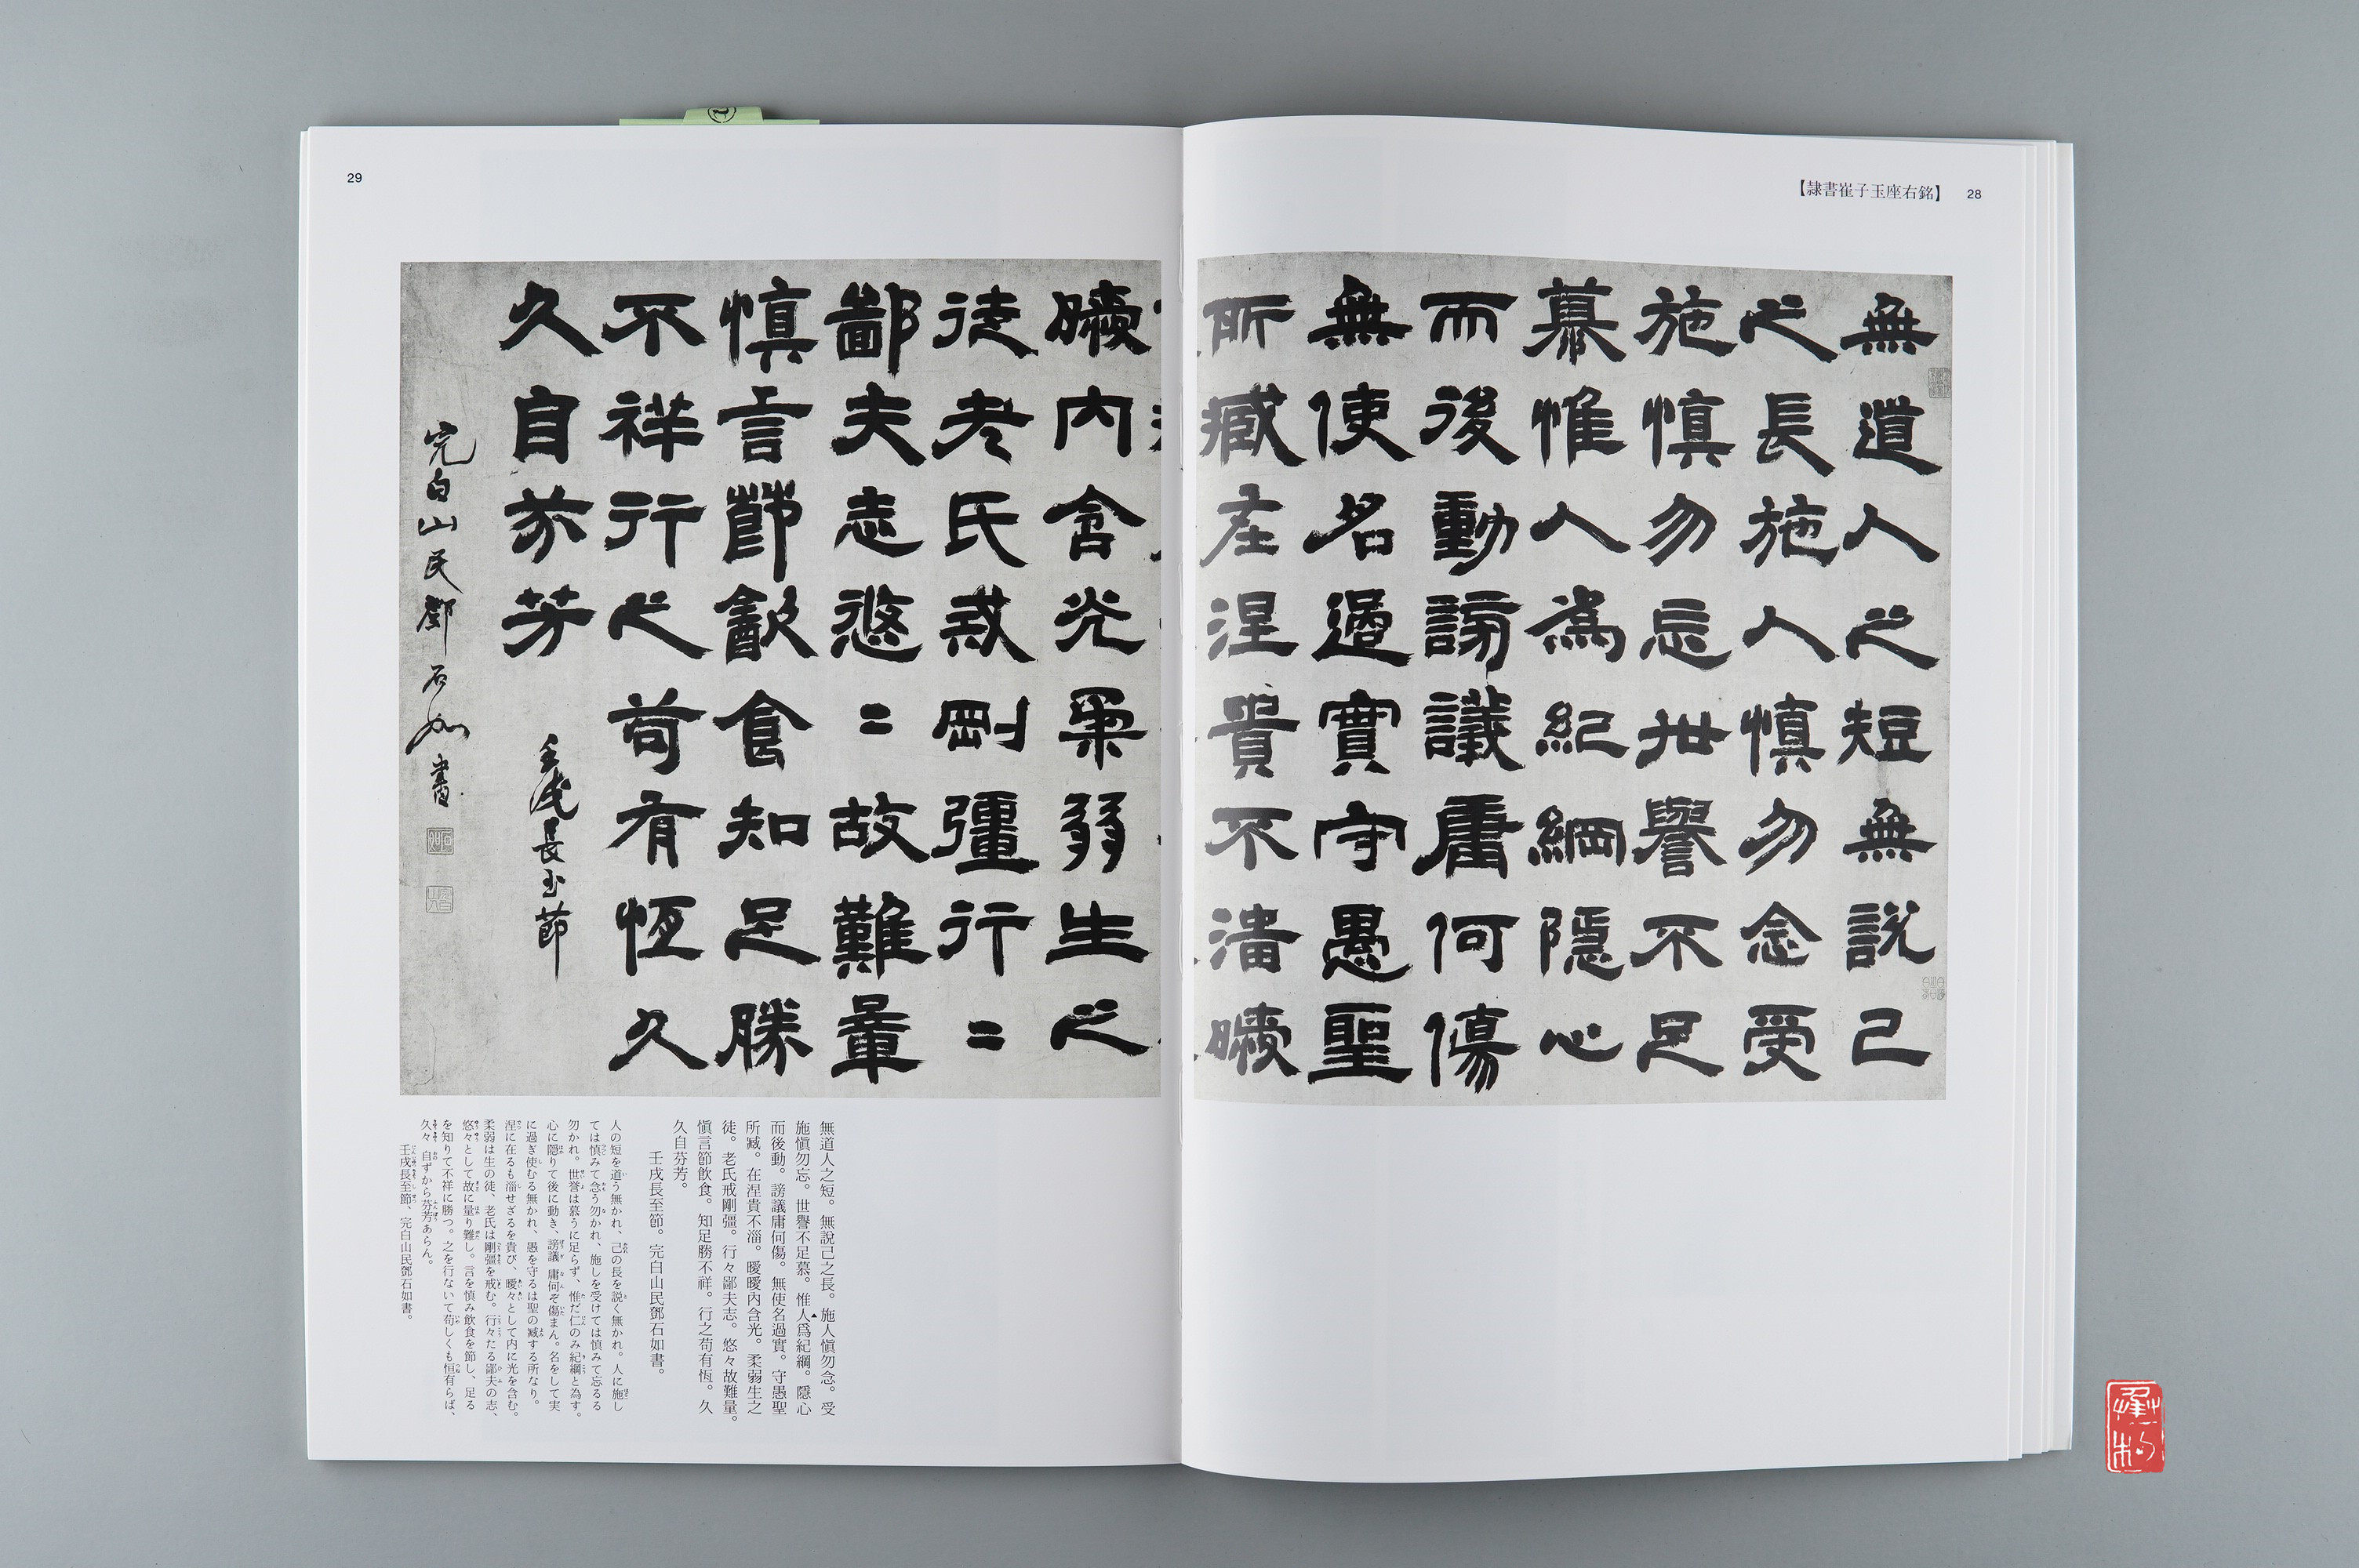 【隷書崔子玉座右銘】 28
無道人之短無說己
之長施人慎勿念受
施慎勿忘世譽不足
慕惟人為紀綱隱心
而後動謗議庸何傷
無使名過實守愚聖
所臧在涅貴不淄曖
29
曖內含光柔弱生之
徒老氏戒剛彊行〻
鄙夫志悠〻故難量
慎言節飲食知足勝
不祥行之苟有恆久
久自芬芳
壬戌長至節
完白山民鄧石如書
無道人之短。無說己之長。施人愼勿念。受
施愼勿忘。世譽不足慕。惟人爲紀綱。隱心
而後動。謗議庸何傷。無使名過實。守愚聖
所臧。在涅貴不淄。曖曖內含光。柔弱生之
徒。老氏戒剛彊。行々鄙夫志。悠々故難量。
愼言節飮食。知足勝不祥。行之苟有恆。久
久自芬芳。
壬戌長至節。完白山民鄧石如書。
人の短を道う無かれ、己の長を説く無かれ。人に施し
ては慎みて念う勿かれ、施しを受けては慎みて忘るる
勿かれ。世誉は慕うに足らず、惟だ仁のみ紀綱と為す。
心に隠りて後に動き、謗議庸何ぞ傷まん。名をして実
に過ぎ使むる無かれ、愚を守るは聖の臧する所なり。
涅に在るも淄せざるを貴び、曖々として内に光を含む。
柔弱は生の徒、老氏は剛彊を戒む。行々たる鄙夫の志、
悠々として故に量り難し。言を慎み飲食を節し、足る
を知りて不祥に勝つ。之を行ないて苟しくも恒有らば、
久々自ずから芬芳あらん。
壬戌長至節、完白山民鄧石如書。